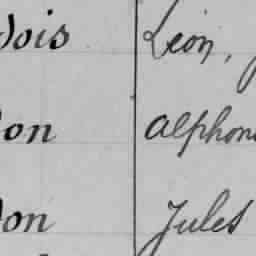 ois Léon,
on Alphon
on Jules